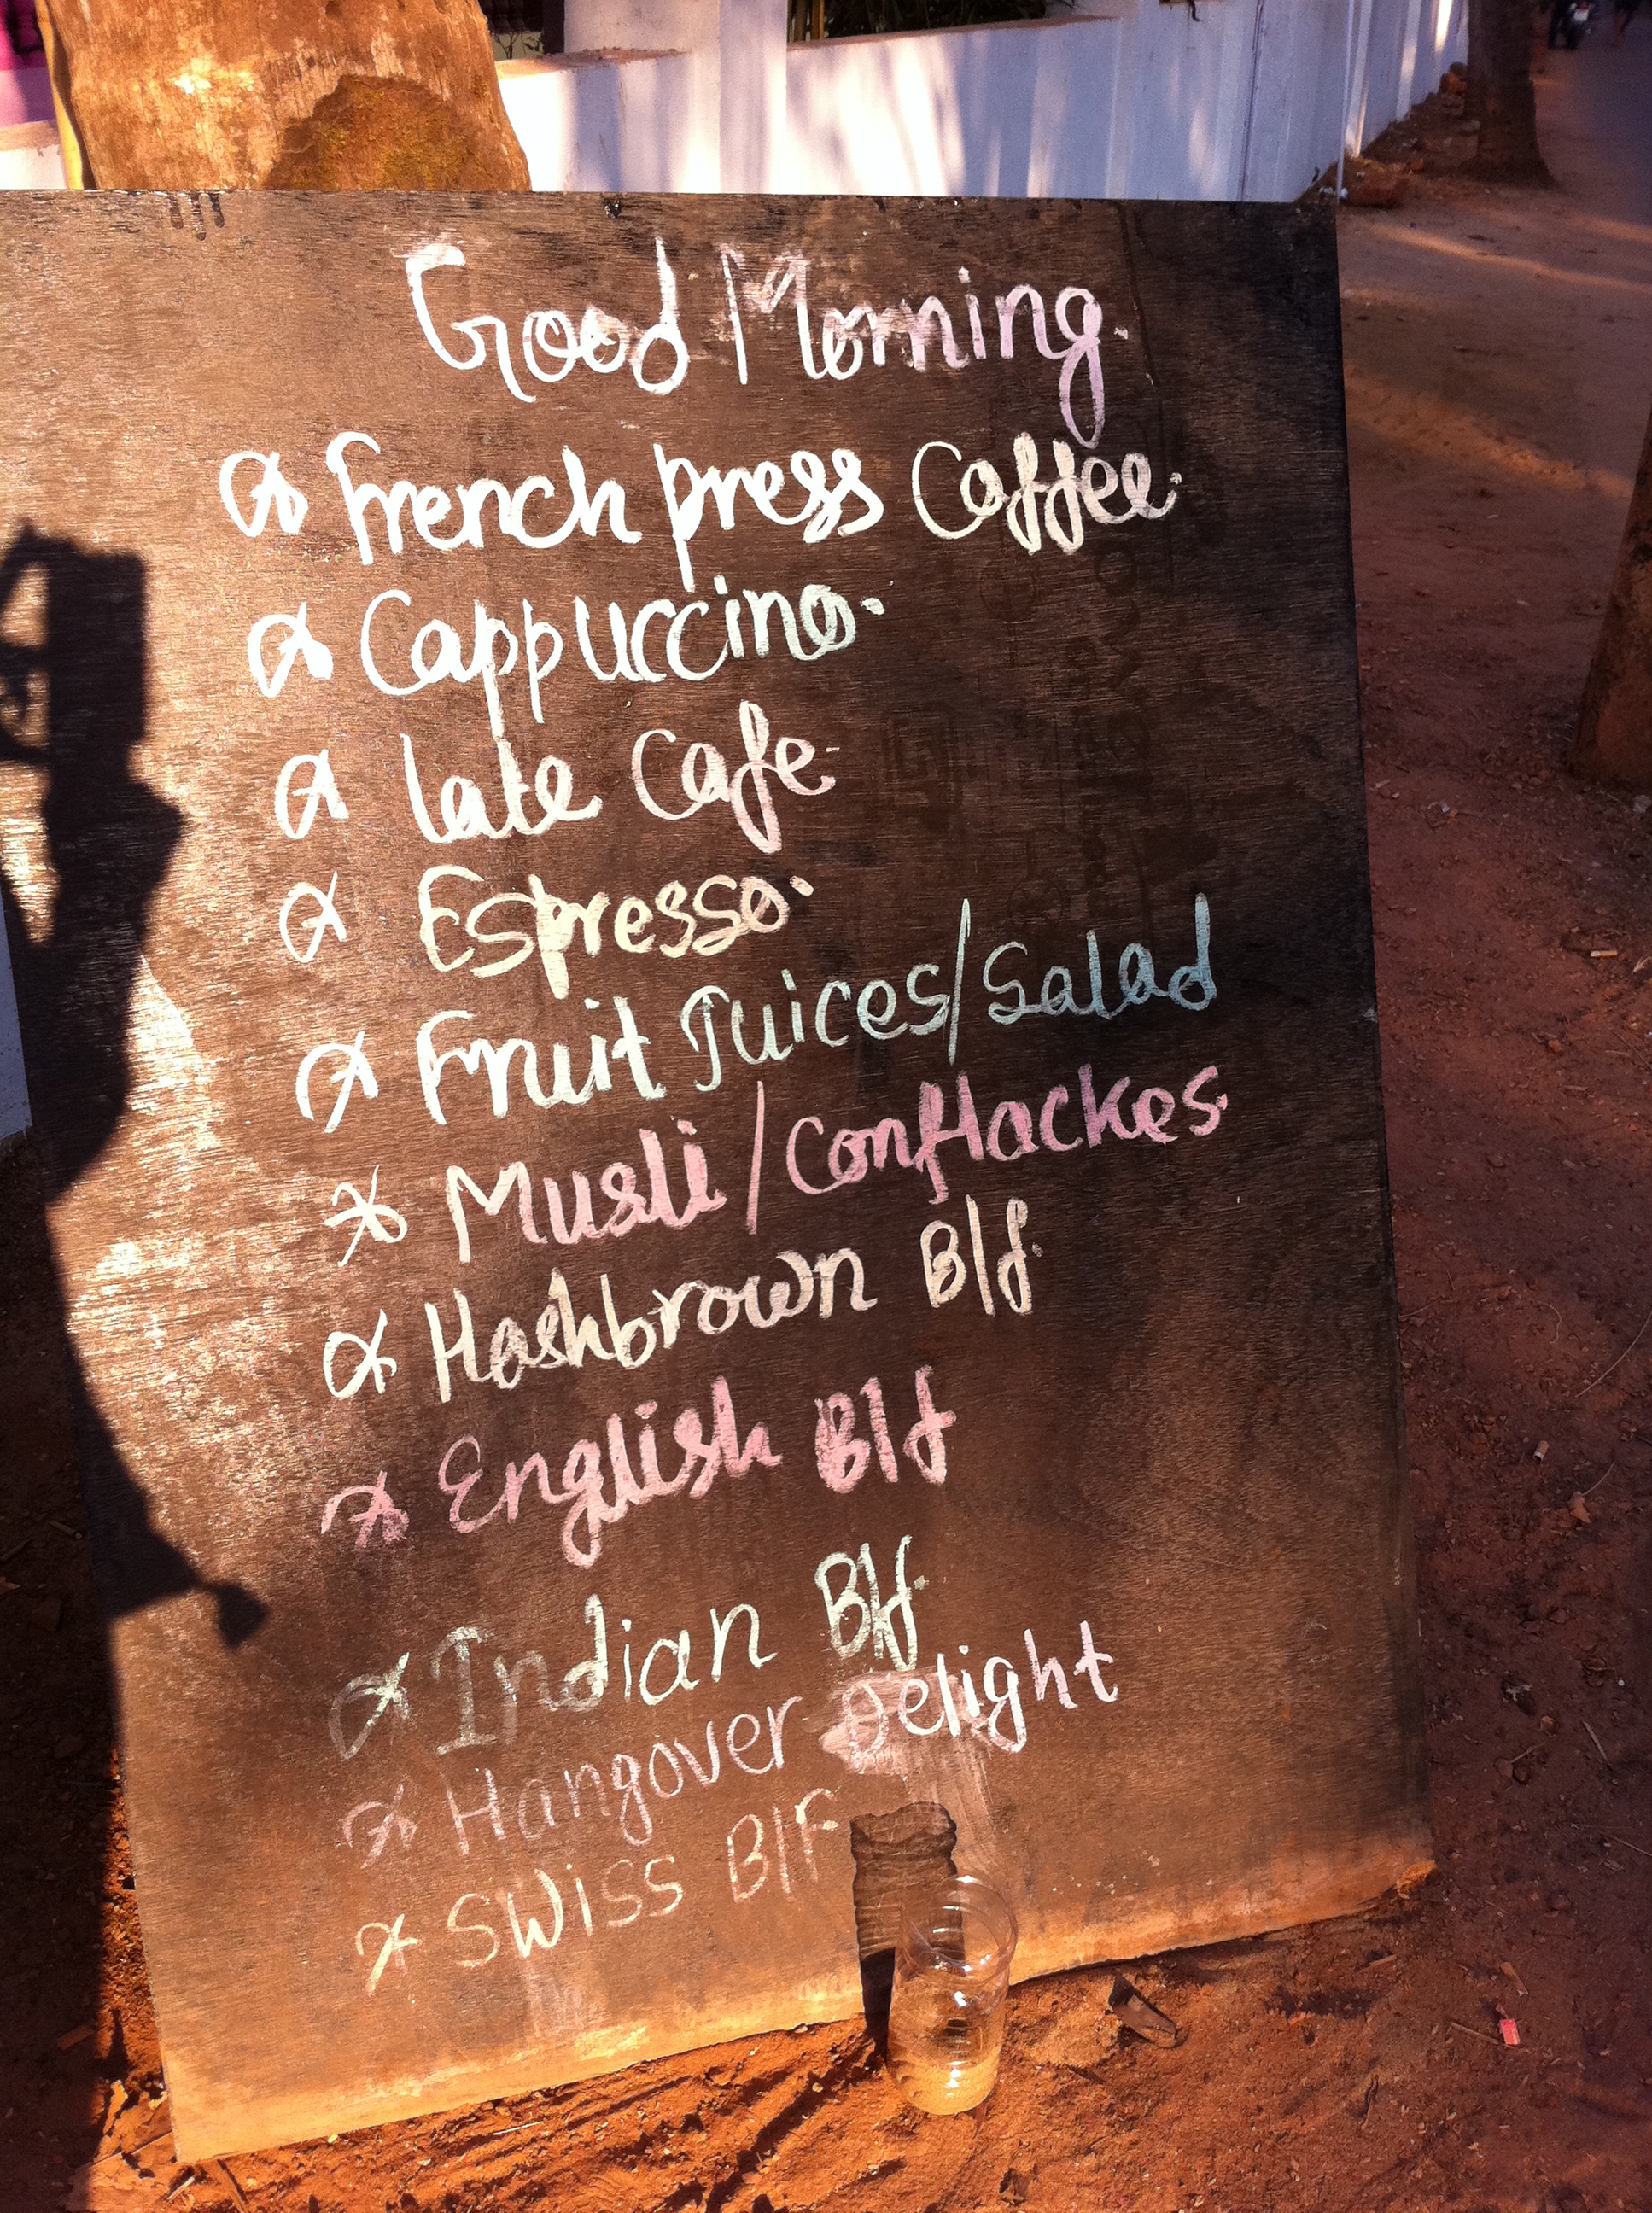 Good Morning.
French press Coffee.
Cappuccino.
late Cafe.
Espresso.
Fruit Juices/Salad
Musli/Conflackes.
Hashbrown B/f.
English B/f
Indian B/f.
Hangover Delight
Swiss B/F